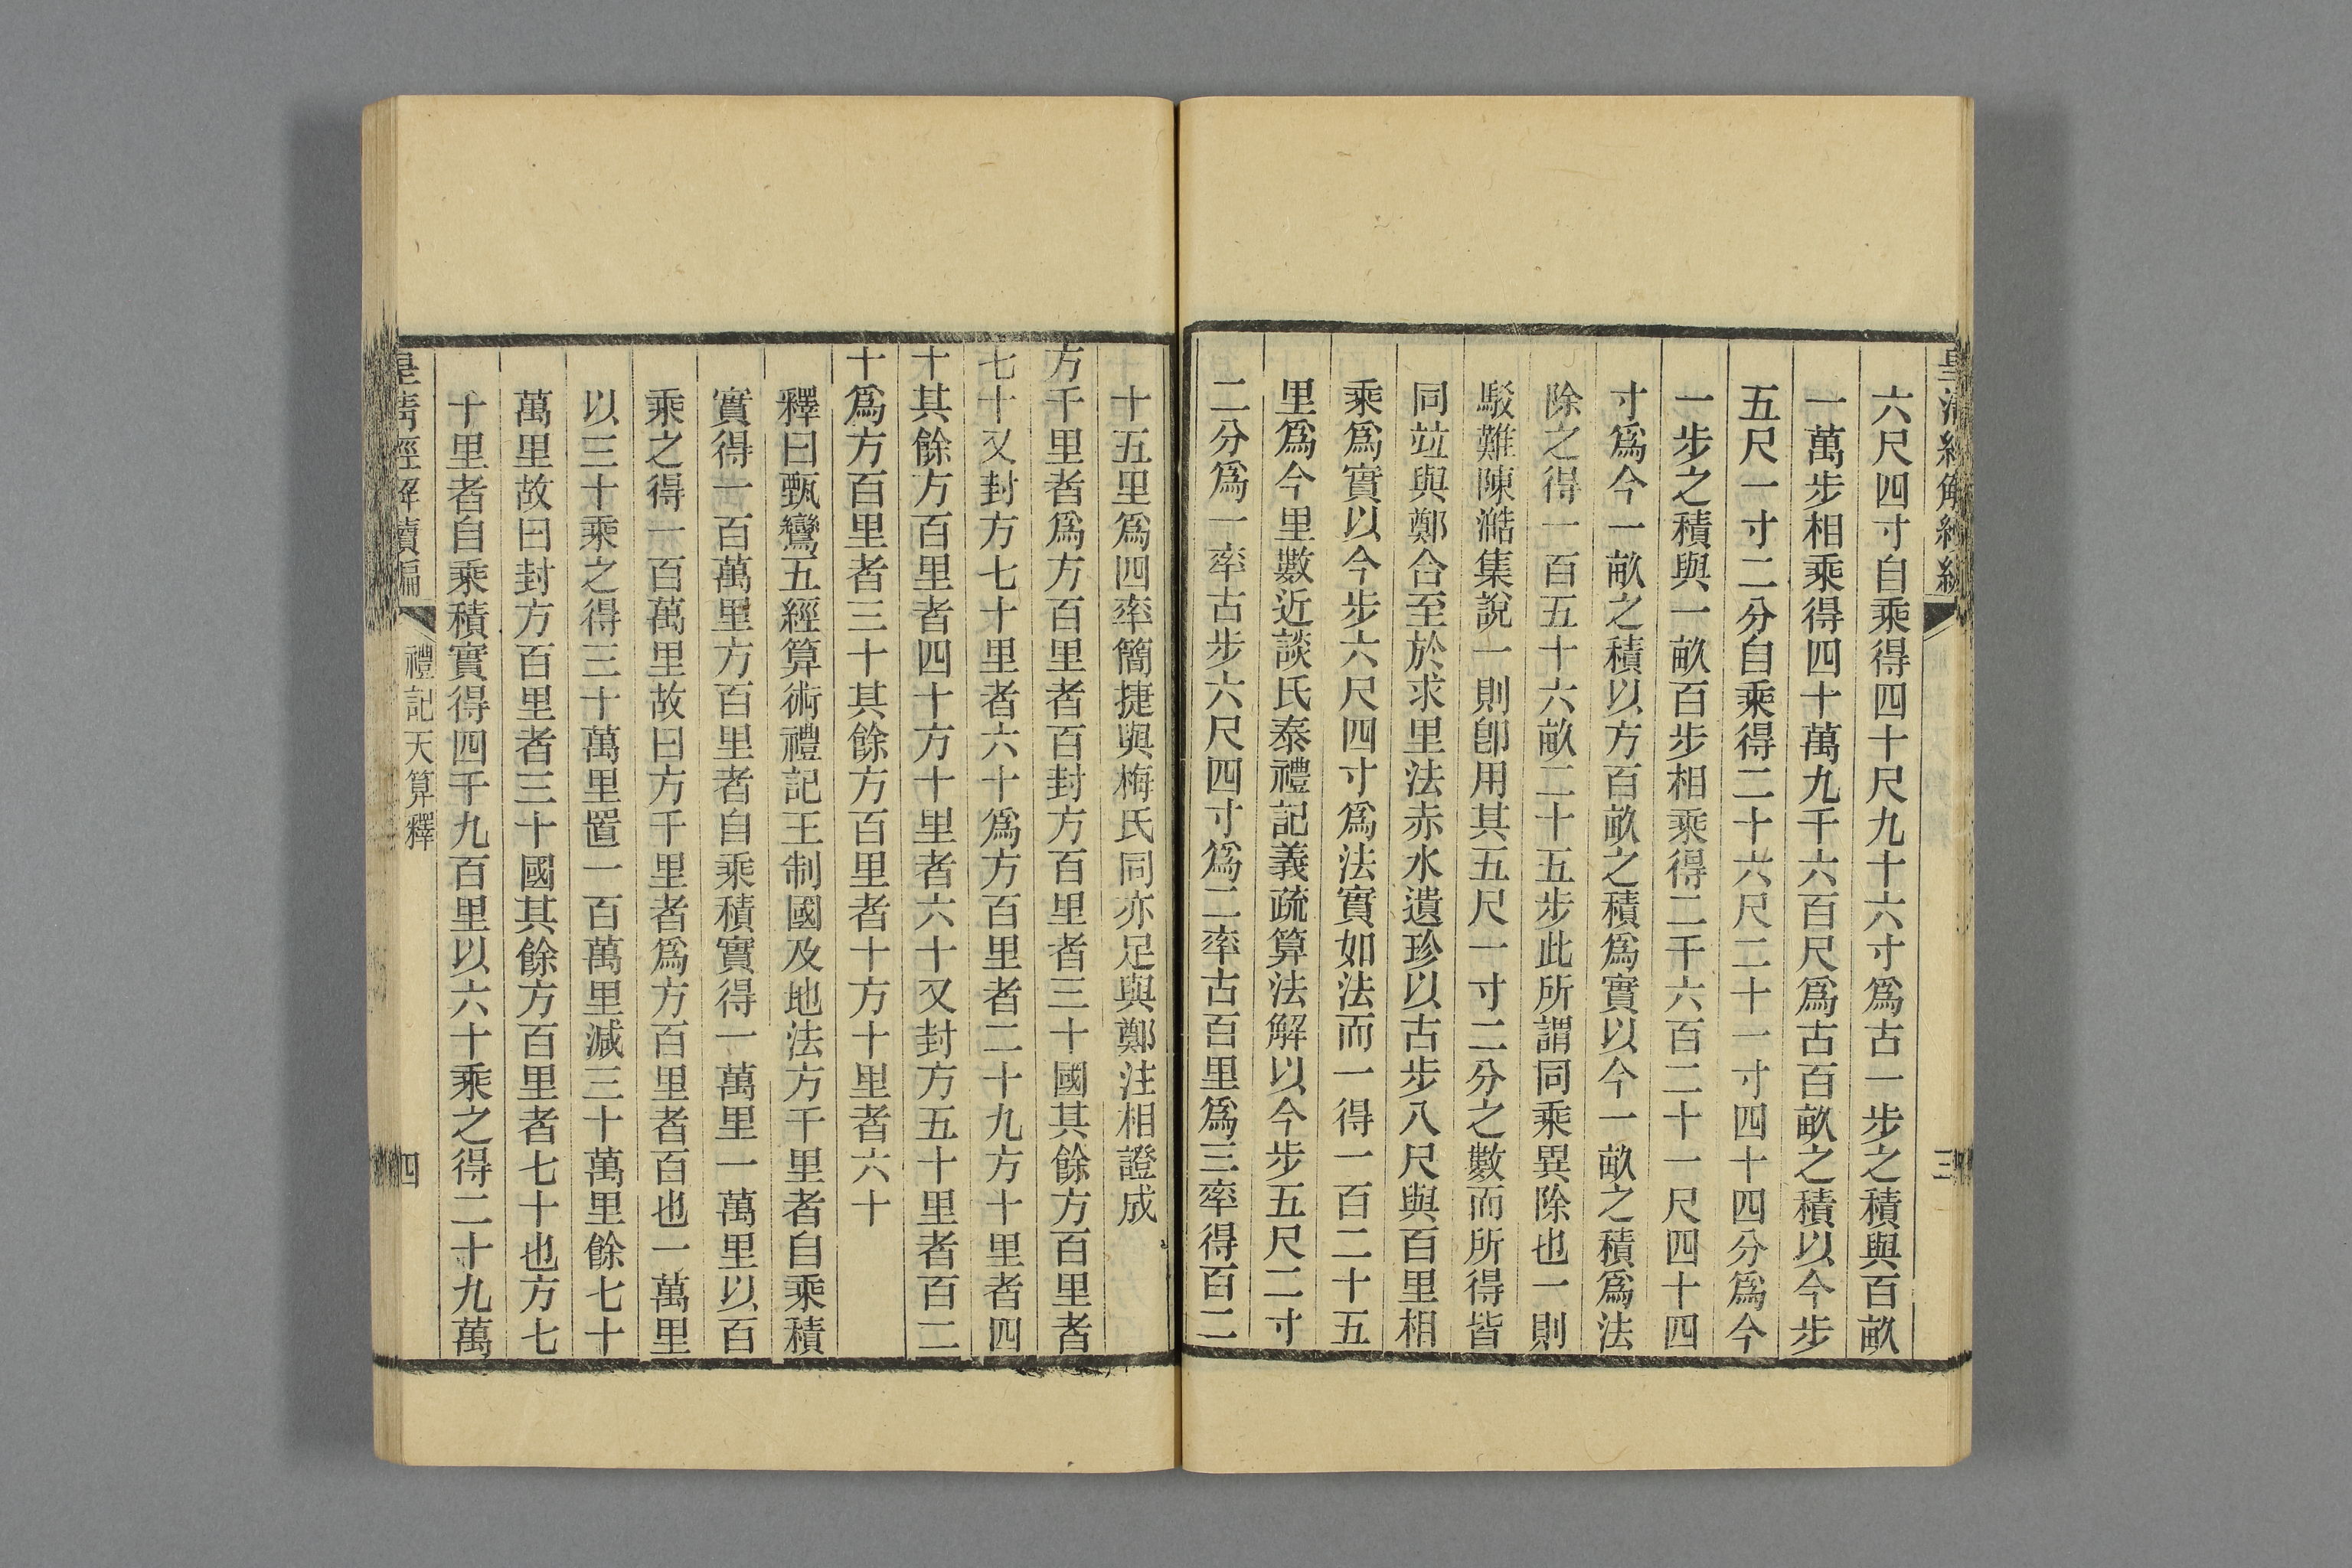 皇清經解續編
三
六尺四寸自乘得四十尺九十六寸爲古一步之積與百畝
一萬步相乘得四十萬九千六百尺爲古百畝之積以今步
五尺一寸二分自乘得二十六尺二十一寸四十四分爲今
一步之積與一畝百步相乘得二千六百二十一尺四十四
寸爲今一畝之積以方百畝之積爲實以今一畝之積爲法
除之得一百五十六畝二十五步此所謂同乘異除也一則
駁難陳澔集說一則卽用其五尺一寸二分之數而所得皆
同竝與鄭合至於求里法赤水遺珍以古步八尺與百里相
乘爲實以今步六尺四寸爲法實如法而一得一百二十五
里爲今里數近談氏泰禮記義疏算法解以今步五尺二寸
二分爲一率古步六尺四寸爲二率古百里爲三率得百二
十五里爲四率簡捷與梅氏同亦足與鄭注相證成
方千里者爲方百里者百封方百里者三十國其餘方百里者
七十又封方七十里者六十爲方百里者二十九方十里者四
十其餘方百里者四十方十里者六十又封方五十里者百二
十爲方百里者三十其餘方百里者十方十里者六十
釋曰甄鸞五經算術禮記王制國及地法方千里者自乘積
實得一百萬里方百里者自乘積實得一萬里一萬里以百
乘之得一百萬里故曰方千里者爲方百里者百也一萬里
以三十乘之得三十萬里置一百萬里減三十萬里餘七十
萬里故曰封方百里者三十國其餘方百里者七十也方七
十里者自乘積實得四千九百里以六十乘之得二十九萬
皇清經解續編
禮記天算釋
四